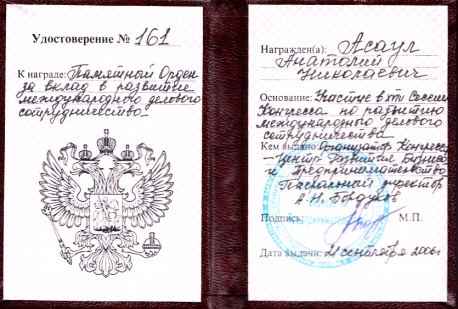 Удостоверение № 161
К награде: Памятный Орден
за вклад в развитие
международного делового
сотрудничества
Награжден(а): Асаул
Анатолий
Николаевич
Основание: Участие в XVII Сессии
Конгресса по развитию
международного делового
сотрудничества
Кем выдано: Организатор Конгресса
- Центр Развития Бизнеса
и Предпринимательства
директор
А.Н.
Подпись:
М.П.
Дата выдачи: 21 сентября 2006г